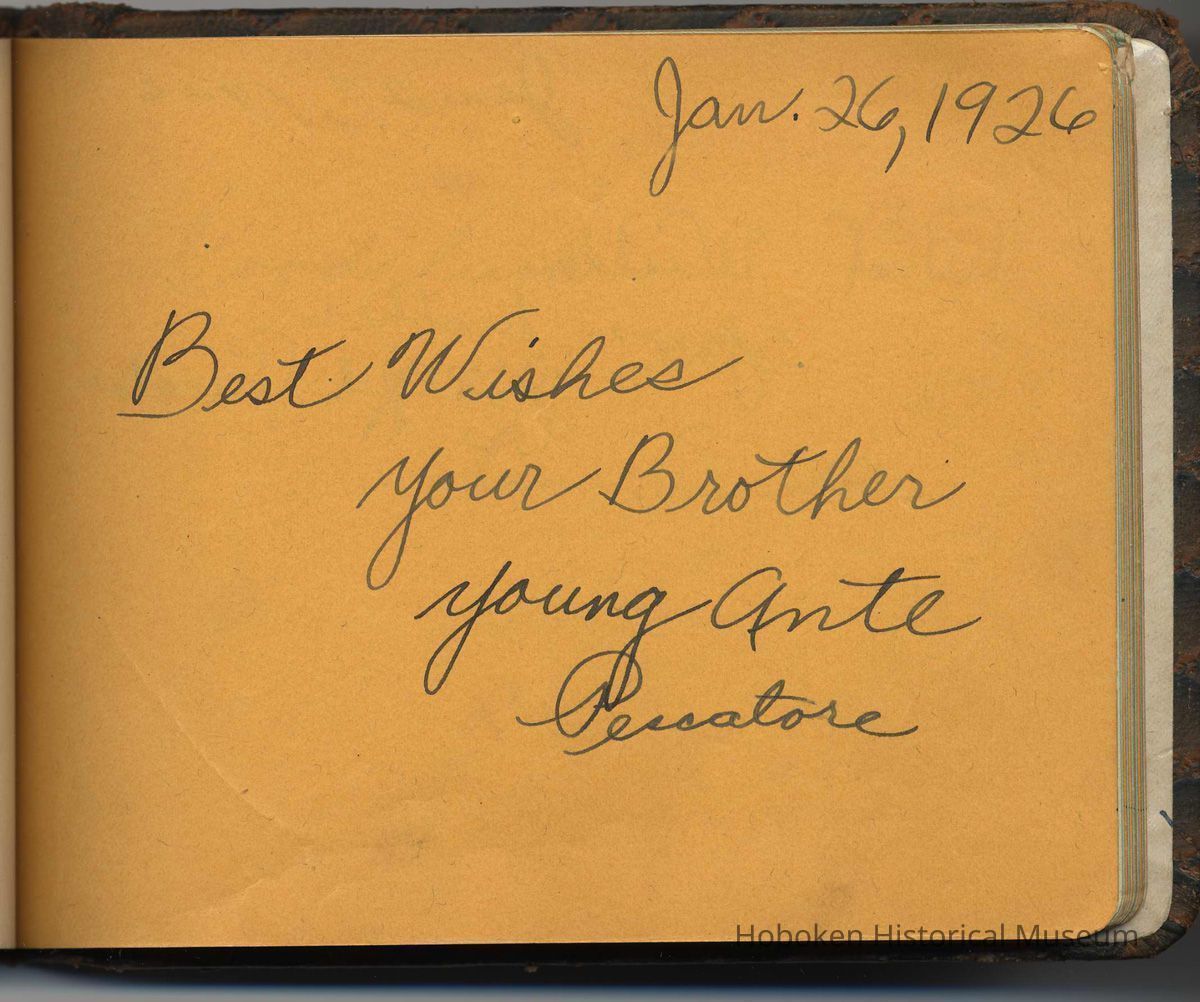 Jan. 26, 1926
Best Wishes
your Brother
young Ante
Pescatore
Hoboken Historical Museum